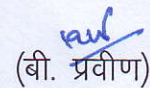 (बी. प्रवीण)